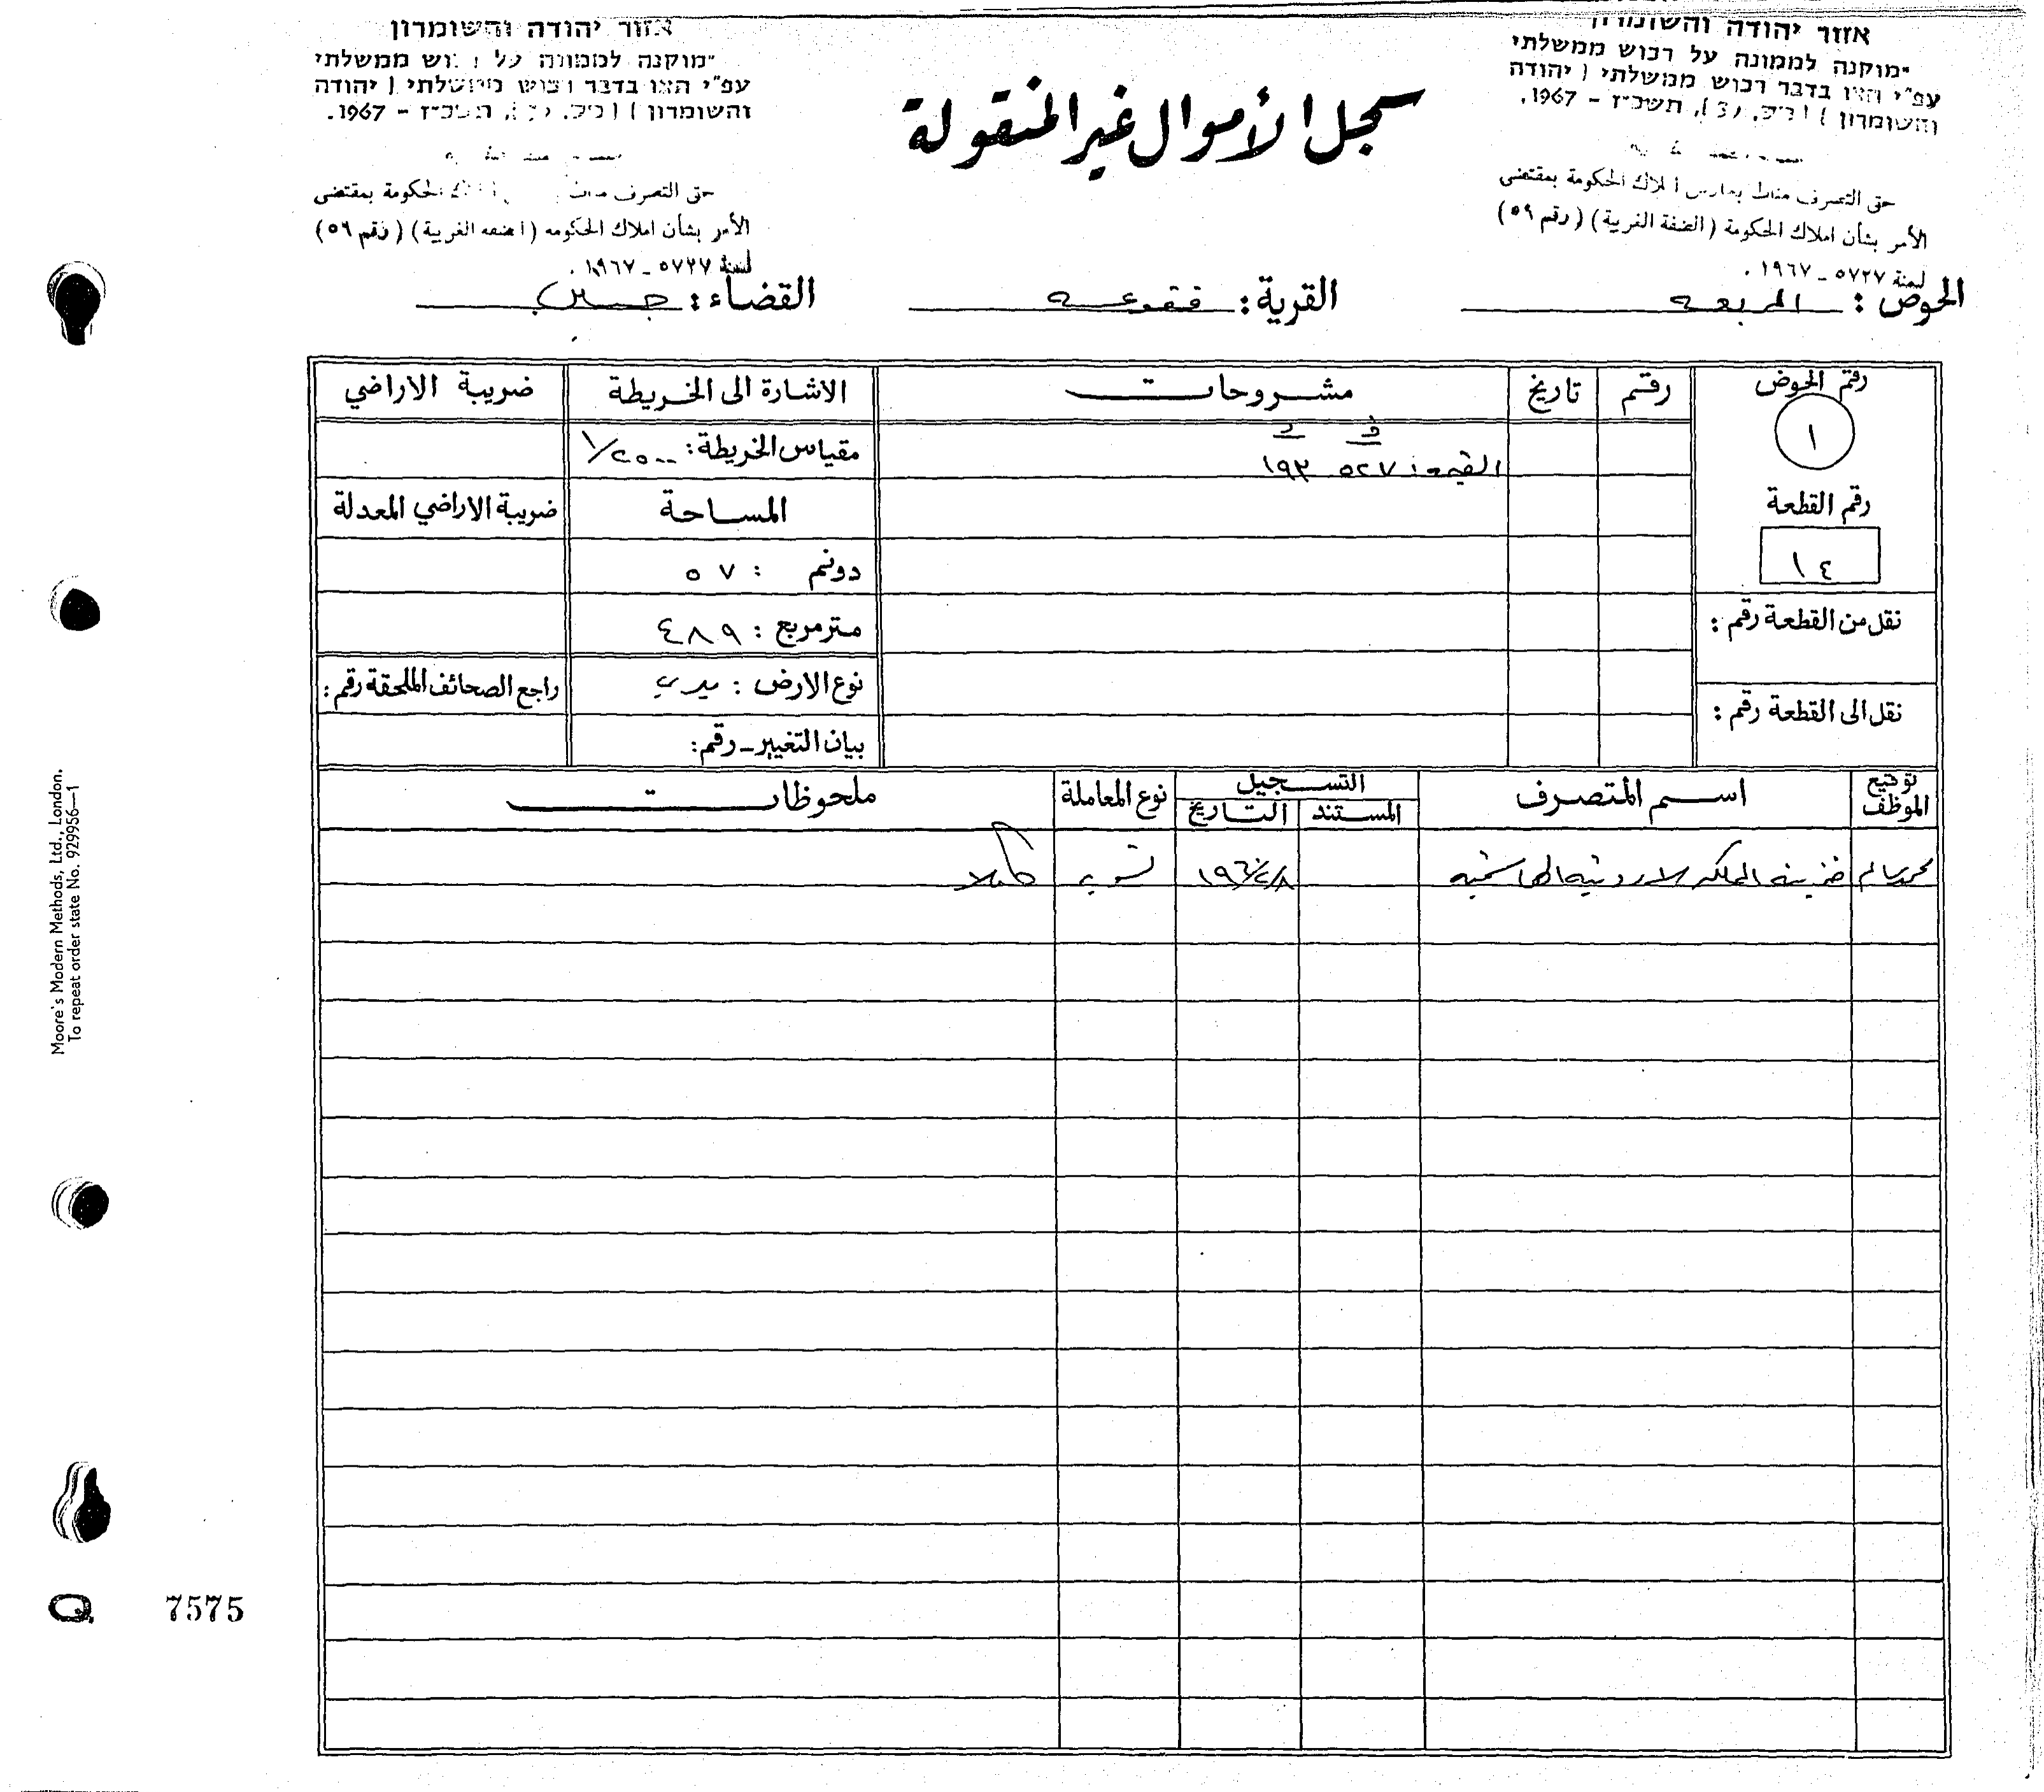 אזור יהודה והשומרון
מוקנה לממונה על רכוש ממשלתי
עפ"י הצו בדבר רכוש ממשלתי ( יהודה
והשומרון ) ( מס. 59 ), תשכ"ז - 1967.
حق التصرف مناط بحارس املاك الحكومة بمقتضى
الأمر بشأن املاك الحكومة (الضفة الغربية) (رقم ٥٩)
لسنة ٥٧٢٧ - ١٩٦٧ .
سجل الأموال غير المنقولة
אזור יהודה והשומרון
מוקנה לממונה על רכוש ממשלתי
עפ"י הצו בדבר רכוש ממשלתי ( יהודה
והשומרון ) ( מס. 59 ), תשכ"ז - 1967.
حق التصرف مناط املاك الحكومة بمقتضى
الأمر بشأن املاك الحكومة (الضفة الغربية) (رقم ٥٩)
لسنة ٥٧٢٧ - ١٩٦٧ .
الحوض : المربعه القرية : فقوعه القضاء : جنين
رقم الحوض رقم تاريخ مشروحات الاشارة الى الخريطة ضريبة الاراضي
١
ف د
القيمة: ٥٢٧ ١٩٣
مقياس الخريطة: ١/٢٥٠٠
رقم القطعة
١٤
المساحة ضريبة الاراضي المعدلة
دونم : ٥٧
نقل من القطعة رقم :
متر مربع : ٤٨٩
نوع الارض : ميري راجع الصحائف الملحقة رقم :
نقل الى القطعة رقم :
بيان التغيير - رقم:
توقيع الموظف اسم المتصرف التسجيل نوع المعاملة ملحوظات
المستند التاريخ
محمد سالم خزينة المملكه الاردنيه الهاشميه تسويه كاملا
Moore's Modern Methods, Ltd., London.
To repeat order state No. 929956—1
Q 7575